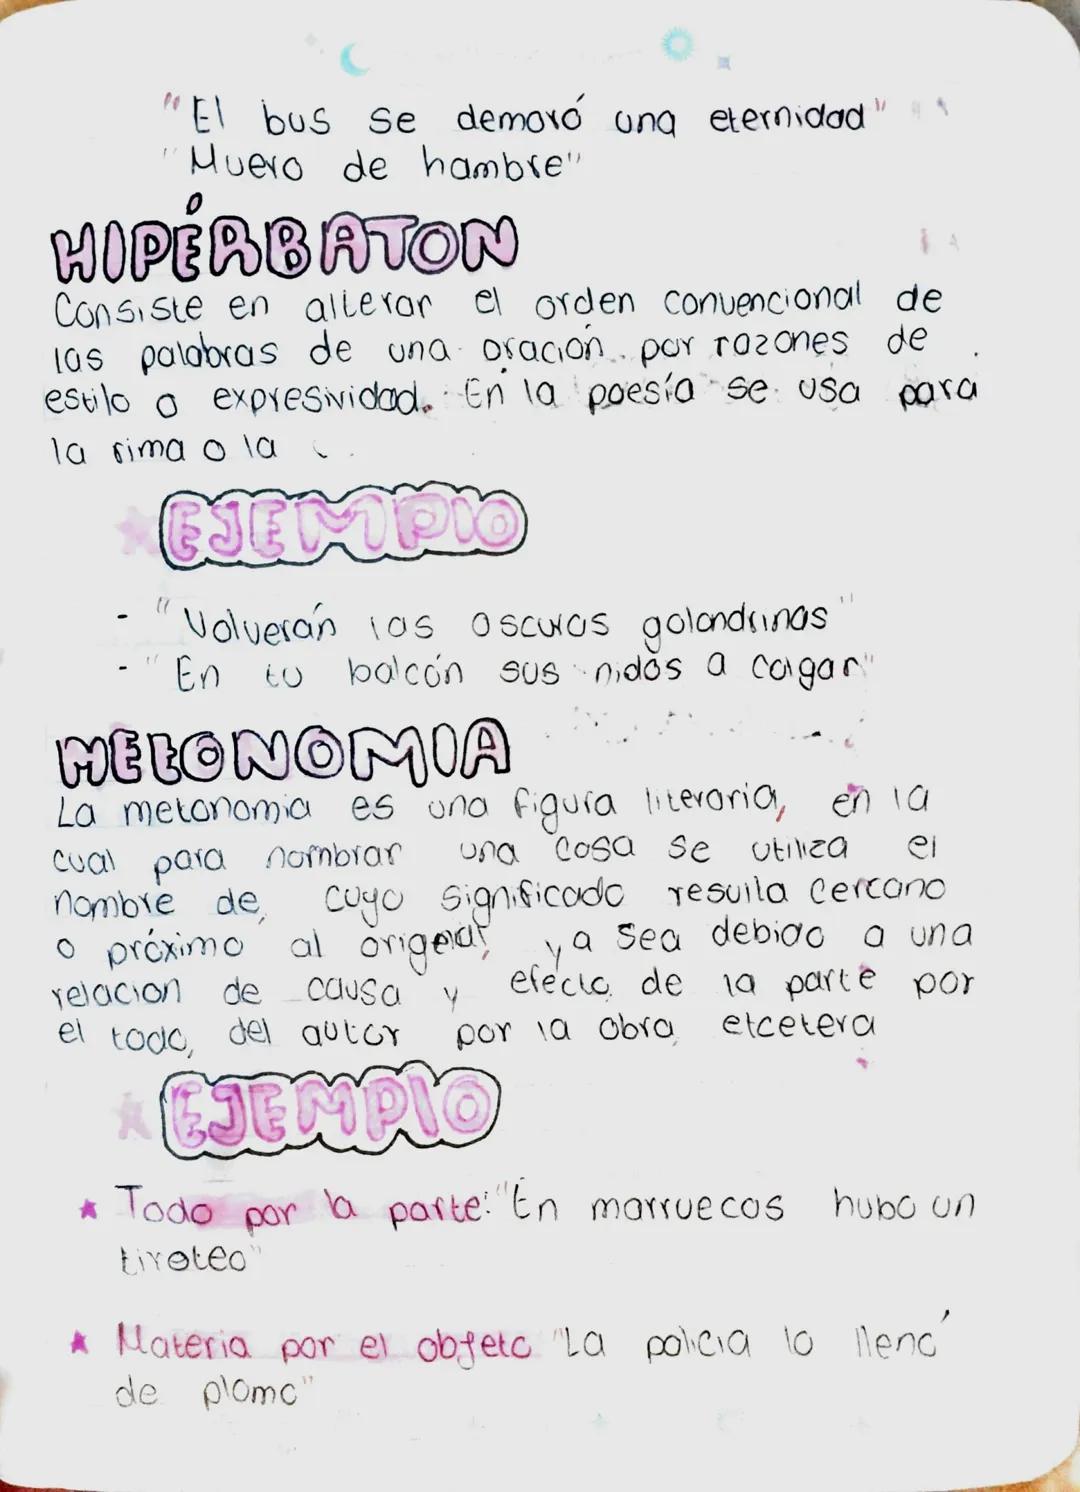 "El bus se demoró una eternidad"
"Muero de hambre"
HIPÉRBATON
Consiste en alterar el orden convencional de
las palabras de una oración por razones de
estilo o expresividad. En la poesía se usa para
la rima o la
EJEMPlO
- "Volverán las oscuras golondrinas"
- "En tu balcón sus nidos a colgar"
METONOMIA
La metonomia es una figura literaria, en la
cual para nombrar una cosa se utiliza el
nombre de, cuyo significado resulta cercano
o próximo al ya sea debido a una
relacion de causa y efecto de la parte por
el todo, del autor por la obra, etcetera
EJEMPlO
Todo por la parte: "En marruecos hubo un
tiroteo"
Materia por el objeto "La policia lo llenó
de plomo"